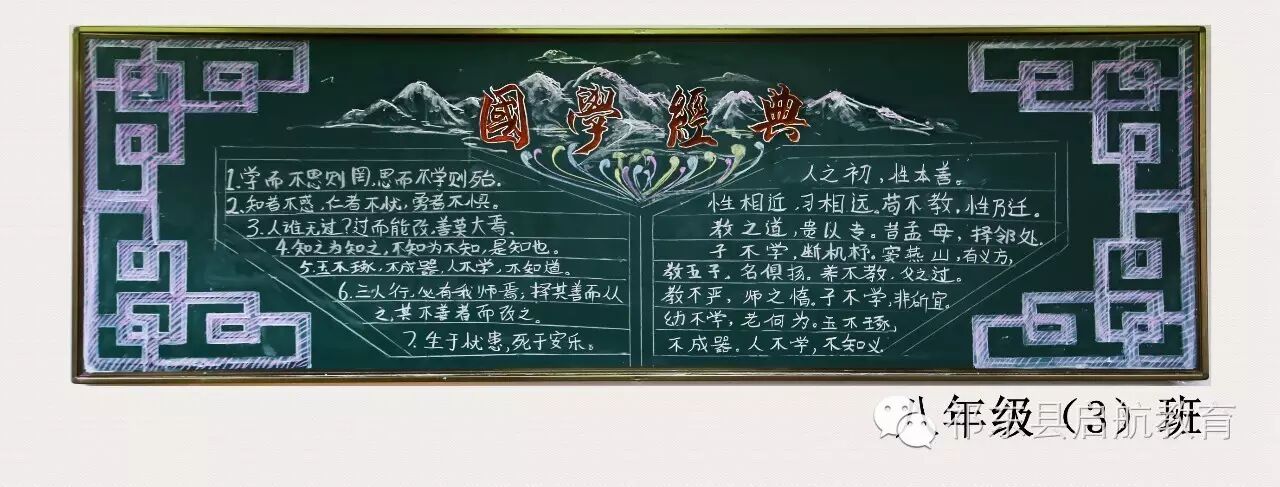 國學經典
1.学而不思则罔,思而不学则殆.
2.知者不惑,仁者不忧,勇者不惧。
3.人谁无过?过而能改,善莫大焉.
4.知之为知之,不知为不知,是知也.
5.玉不琢,不成器.人不学,不知道。
6.三人行,必有我师焉;择其善而从
之,其不善者而改之。
7.生于忧患,死于安乐。
人之初,性本善。
性相近,习相远。苟不教,性乃迁。
教之道,贵以专。昔孟母,择邻处.
子不学,断机杼。窦燕山,有义方,
教五子。名俱扬。养不教,父之过。
教不严,师之惰。子不学,非所宜。
幼不学,老何为。玉不琢,
不成器。人不学,不知义
八年级(3)班
祁东县启航教育